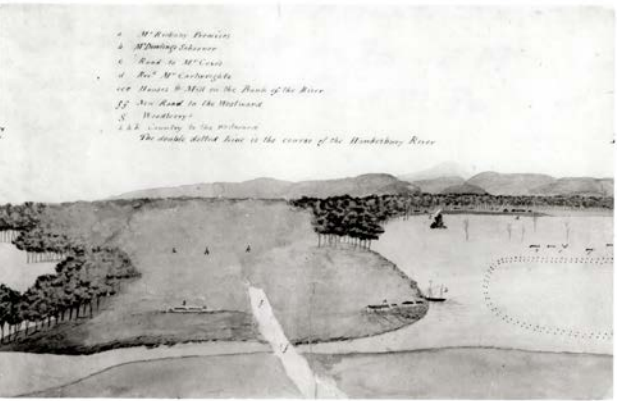 a Mr
b Mr
c Road to Mr Coxes
d Revd Mr Cartwrights
eee Houses & Mill on the Bank of the River
ff New Road to the Westward
g
h h h Country to the Westward
The double dotted line is the course of the Hawkesbury River